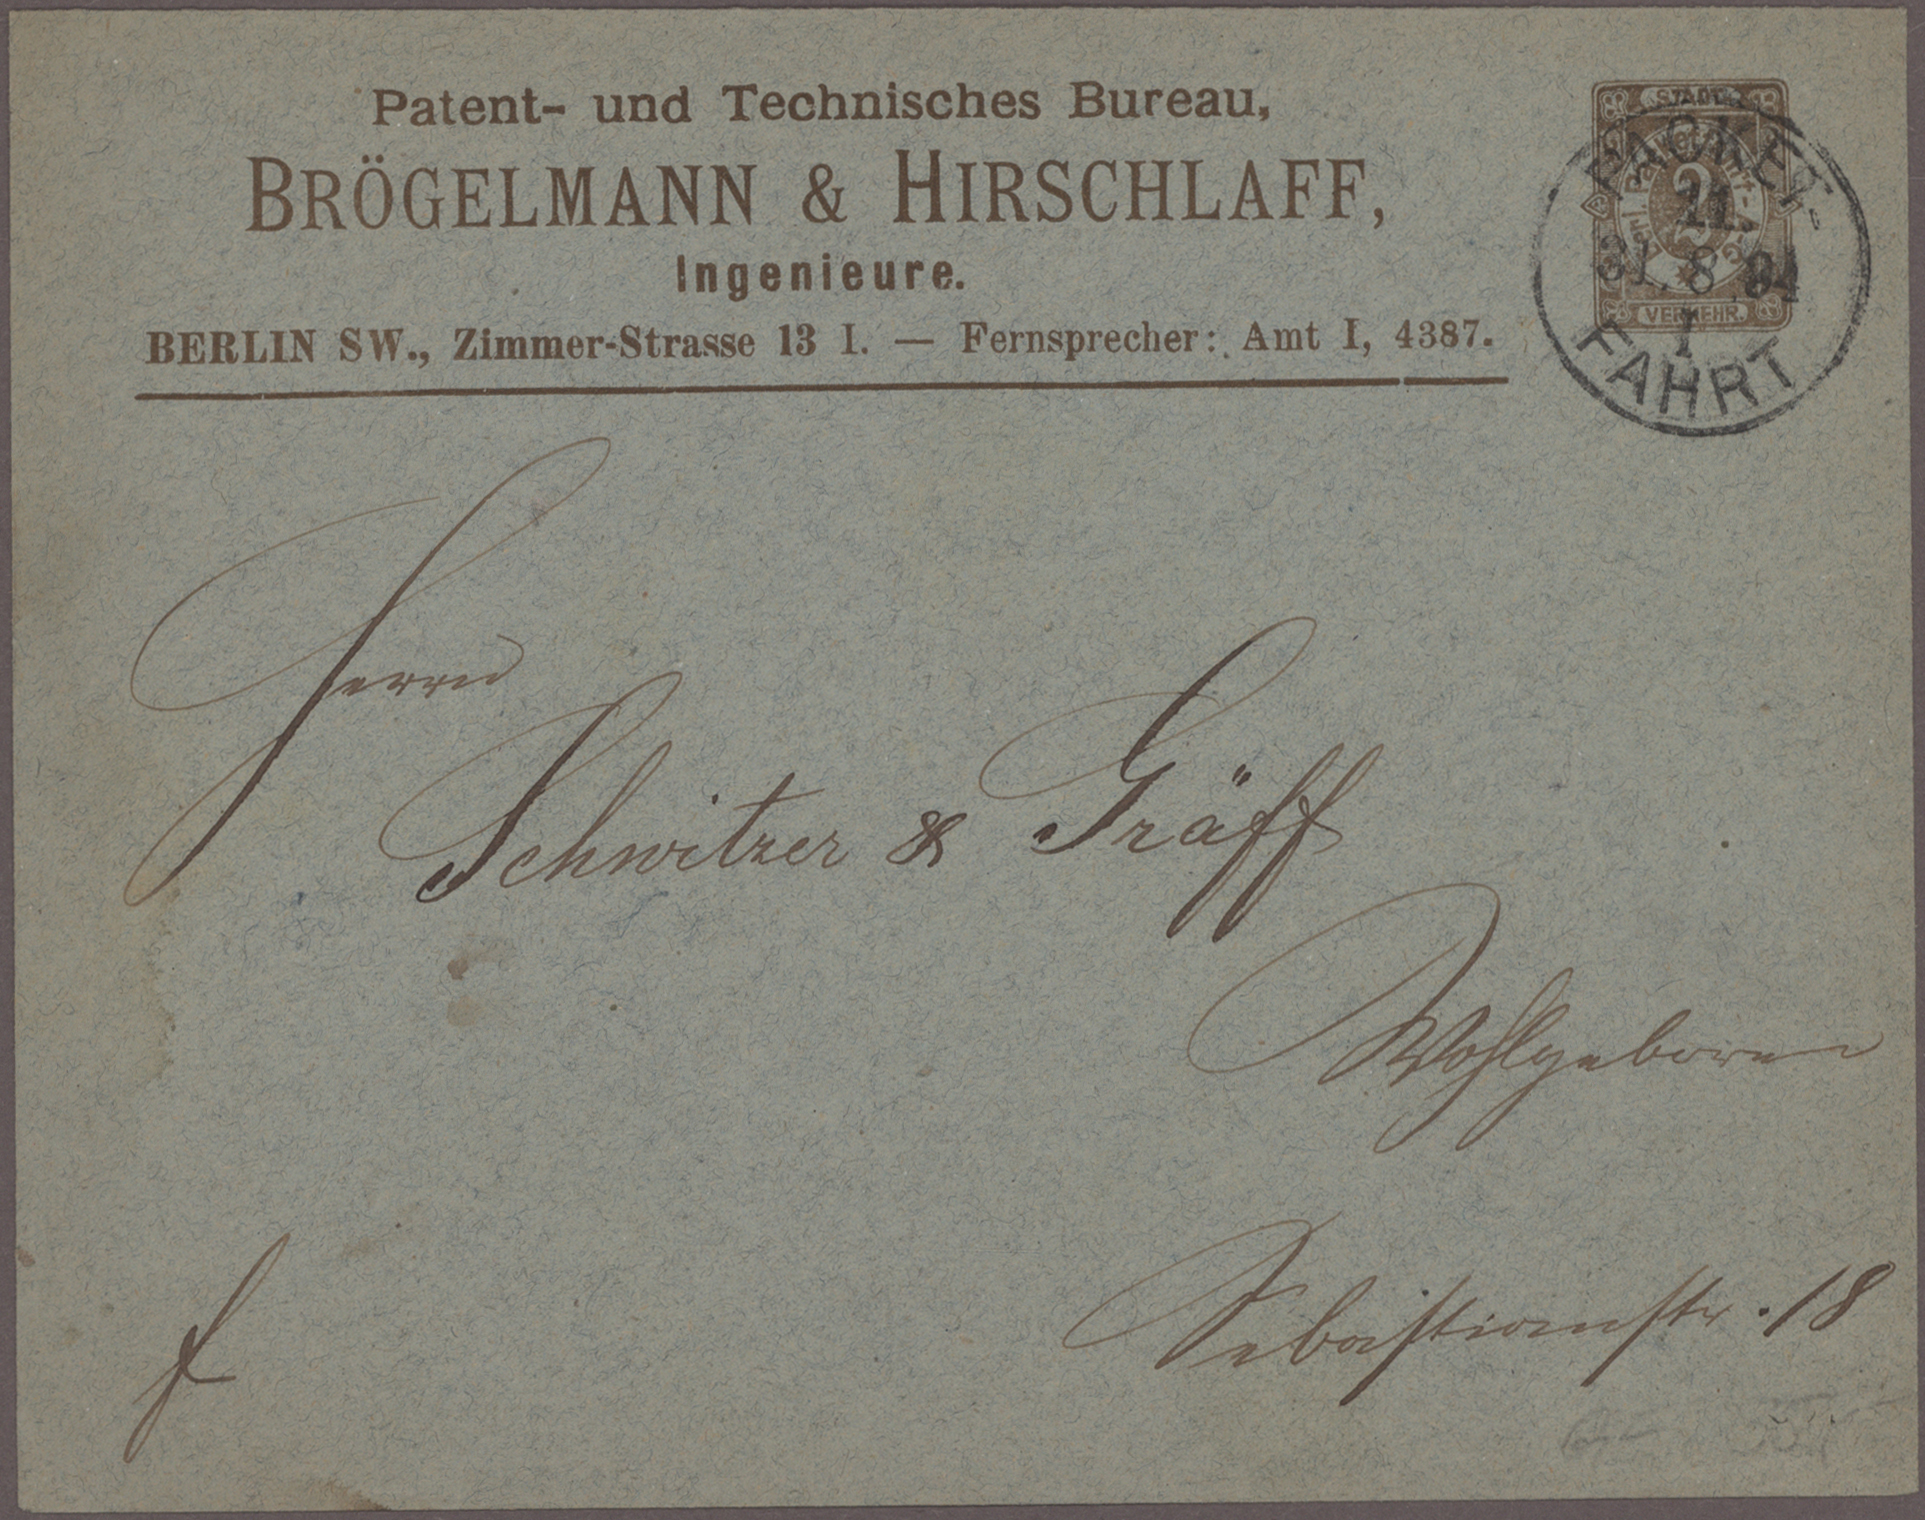 Patent- und Technisches Bureau,
BRÖGELMANN & HIRSCHLAFF,
Ingenieure.
BERLIN SW., Zimmer-Strasse 13 I. — Fernsprecher: Amt I, 4387.
STADT-
2
VERKEHR.
PACKET-
11.
31.8.94
I
FAHRT
Herrn
Schwitzer & Gräff
Wohlgeboren
Sebastianstr. 18